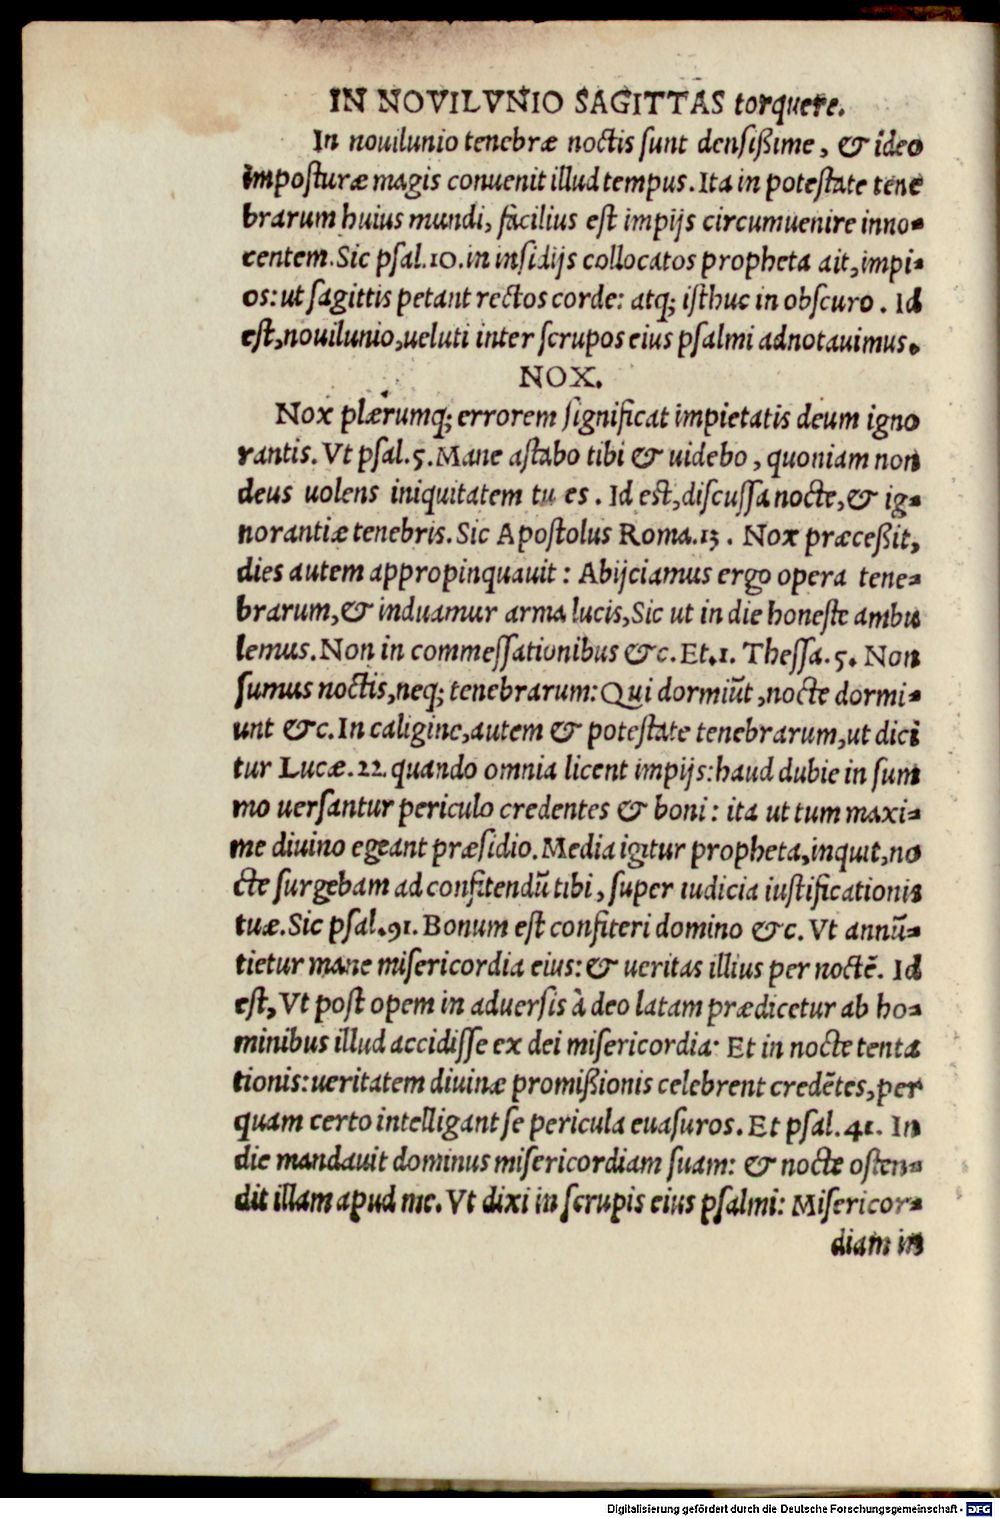 IN NOVILVNIO SAGITTAS torquere.
In nouilunio tenebræ noctis sunt densißime, & ideo
imposturæ magis conuenit illud tempus. Ita in potestate tene
brarum huius mundi, facilius est impijs circumuenire inno-
centem. Sic psal. 10. in insidijs collocatos propheta ait, impi-
os: ut sagittis petant rectos corde: atq; isthuc in obscuro. Id
est, nouilunio, ueluti inter scrupos eius psalmi adnotauimus.
NOX.
Nox plærumq; errorem significat impietatis deum igno
rantis. Vt psal. 5. Mane astabo tibi & uidebo, quoniam non
deus uolens iniquitatem tu es. Id est, discussa nocte, & ig-
norantiæ tenebris. Sic Apostolus Roma. 13. Nox præceßit,
dies autem appropinquauit: Abijciamus ergo opera tene-
brarum, & induamur arma lucis, Sic ut in die honeste ambu
lemus. Non in commessationibus &c. Et. 1. Thessa. 5. Non
sumus noctis, neq; tenebrarum: Qui dormiũt, nocte dormi-
unt &c. In caligine, autem & potestate tenebrarum, ut dici
tur Lucæ. 22. quando omnia licent impijs: haud dubie in sum
mo uersantur periculo credentes & boni: ita ut tum maxi-
me diuino egeant præsidio. Media igitur propheta, inquit, no
cte surgebam ad confitendũ tibi, super iudicia iustificationis
tuæ. Sic psal. 91. Bonum est confiteri domino &c. Vt annũ-
tietur mane misericordia eius: & ueritas illius per noctẽ. Id
est, Vt post opem in aduersis à deo latam prædicetur ab ho-
minibus illud accidisse ex dei misericordia: Et in nocte tenta
tionis: ueritatem diuinæ promißionis celebrent credẽtes, per
quam certo intelligant se pericula euasuros. Et psal. 41. In
die mandauit dominus misericordiam suam: & nocte osten-
dit illam apud me. Vt dixi in scrupis eius psalmi: Misericor-
diam in
Digitalisierung gefördert durch die Deutsche Forschungsgemeinschaft - DFG